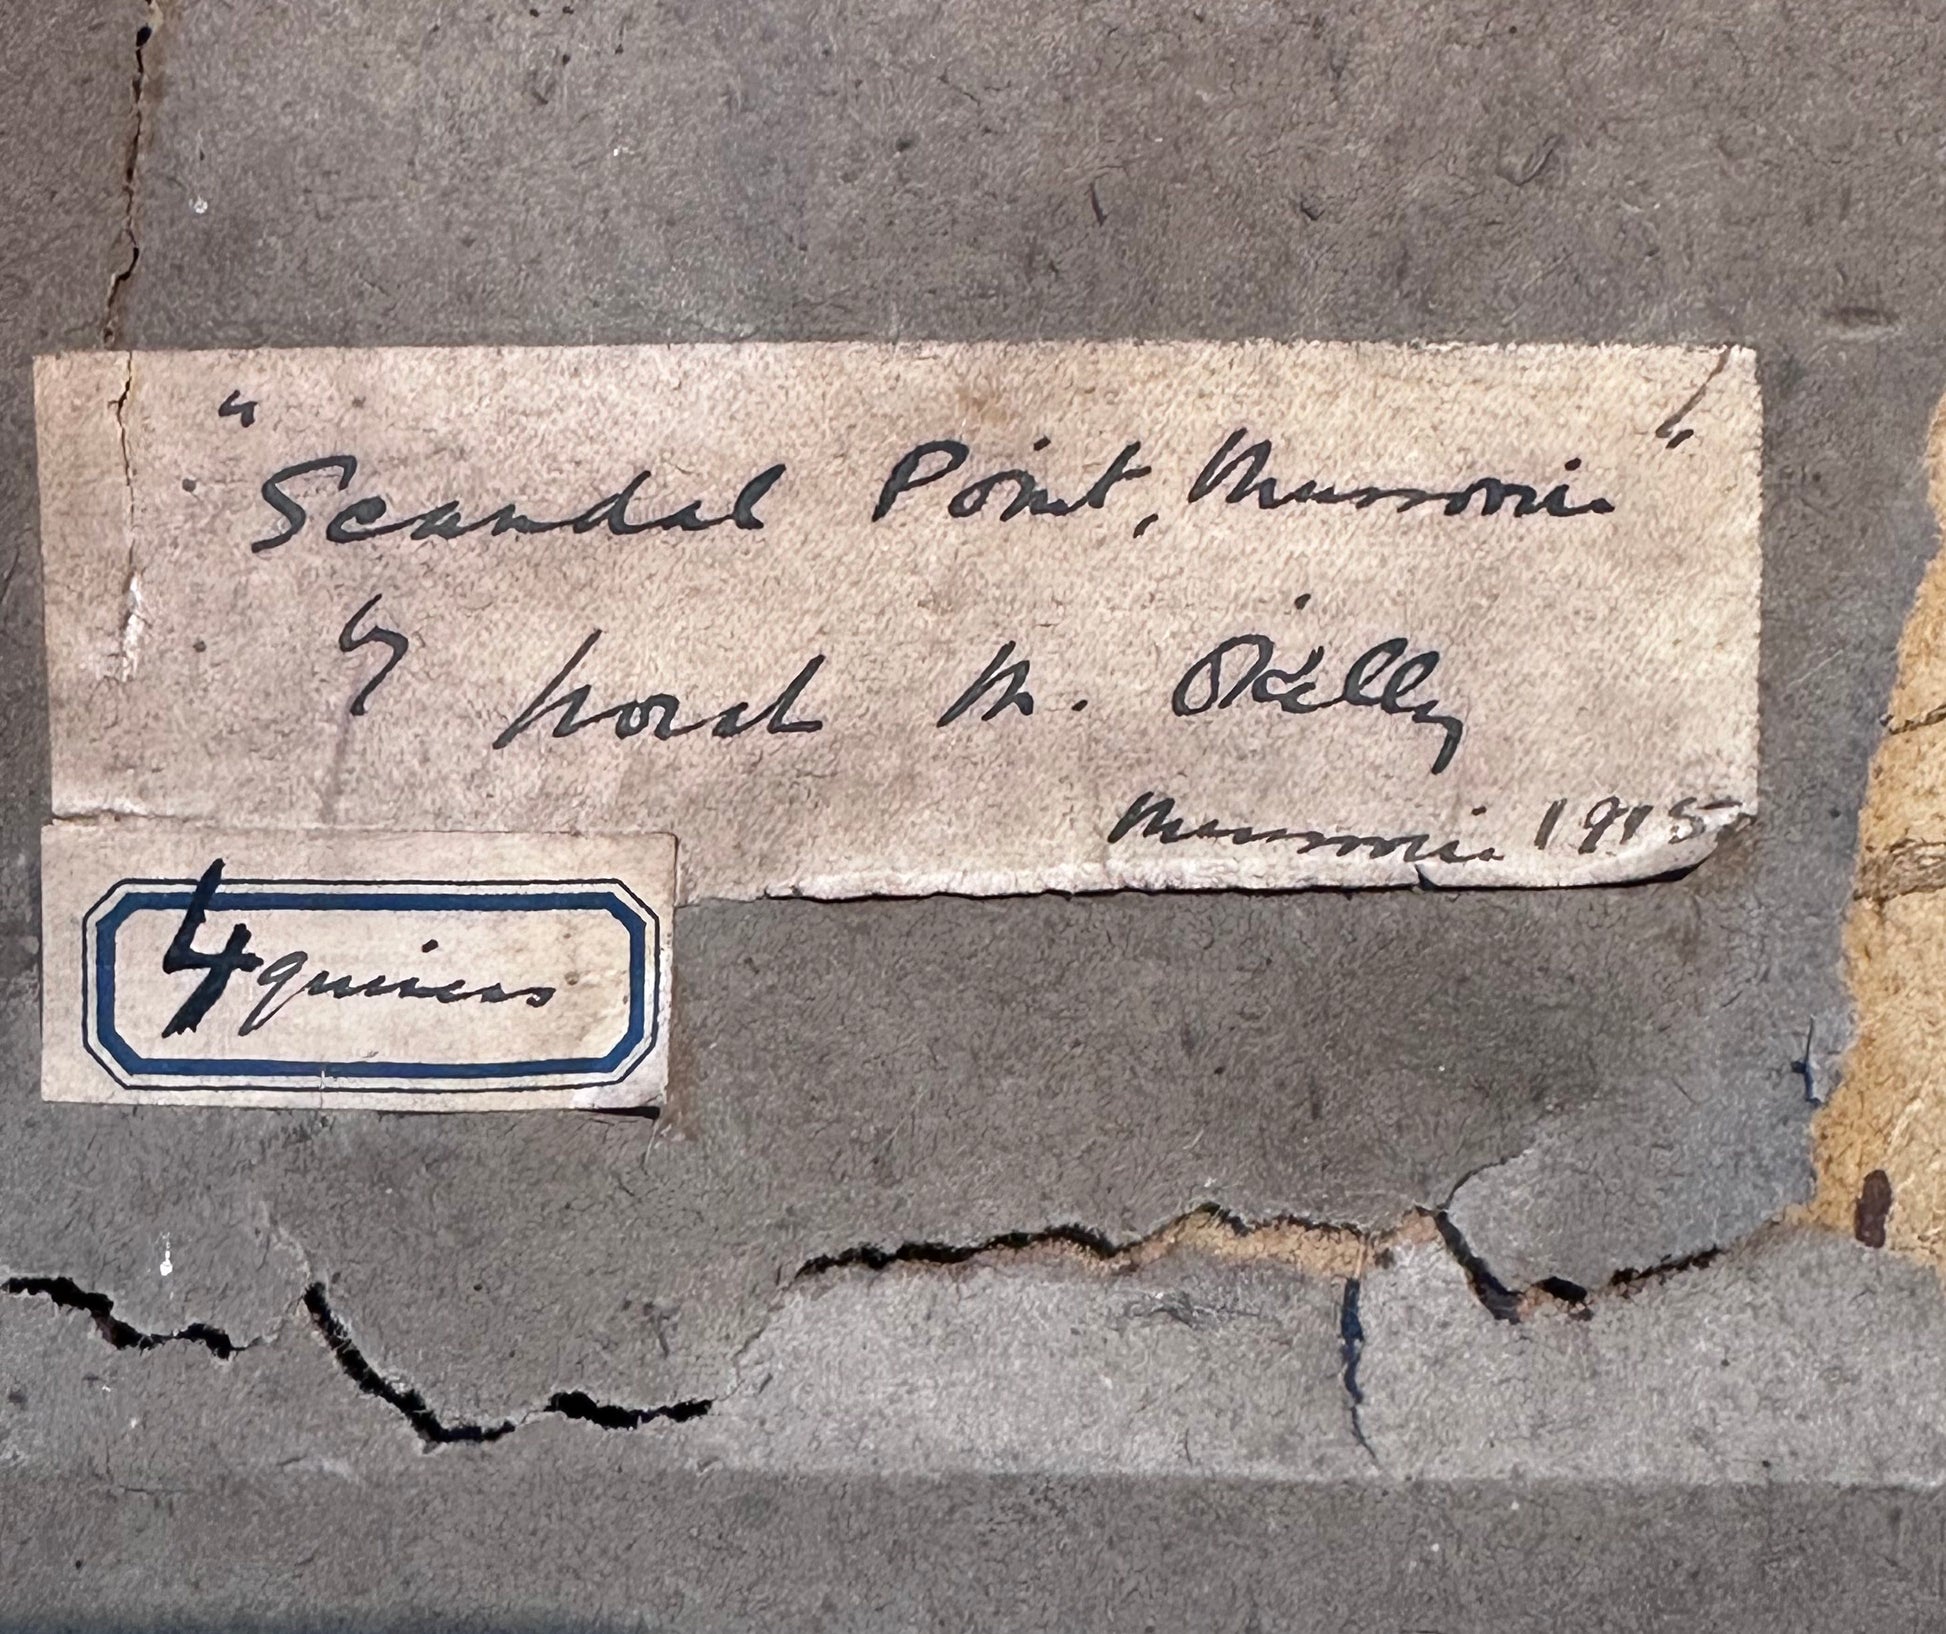 "Scandal Point, Mussoorie"
by Norah M. O'Kelly
Mussoorie 1915
4 guineas